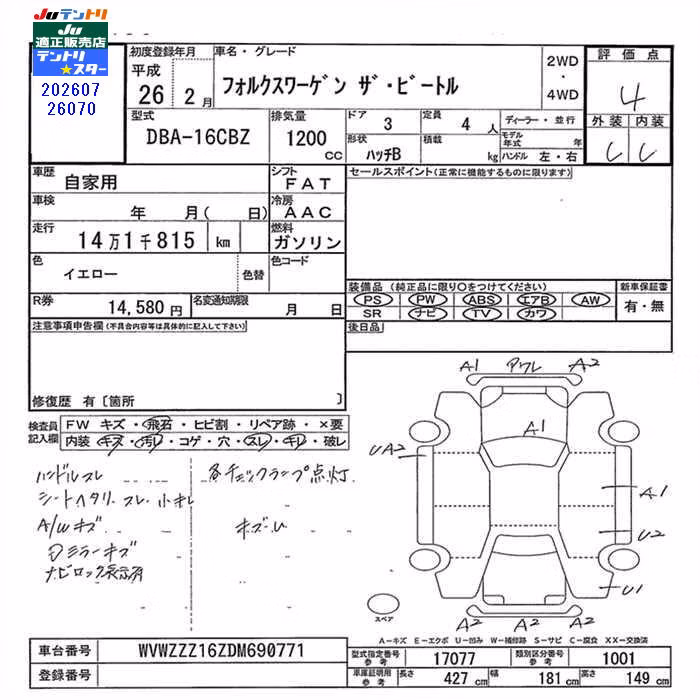 Juテントリ
Ju
適正販売店
テントリ
★スター
202607
26070
初度登録年月
平成
26 2月
車名・グレード
フォルクスワーゲン ザ・ビートル
2WD
・
4WD
評価点
4
外装 内装
型式
DBA-16CBZ
排気量
1200
CC
ドア 3
定員 4 人
形状 ハッチB
積載 kg
ディーラー・並行
モデル年式 年
ハンドル 左・右
車歴 自家用
シフト FAT
車検 年 月( 日)
冷房 AAC
走行 14万1千815 km
燃料 ガソリン
色 イエロー 色替
色コード
R券 14,580円
名変通知期限 月 日
セールスポイント(正常に機能するものに限ります)
装備品 (純正品に限り○をつけてください)
PS PW ABS エアB AW
SR ナビ TV カワ
新車保証書
有・無
後日品
注意事項申告欄(不具合内容等は具体的に記入して下さい)
修復歴 有〔箇所 〕
検査員記入欄
FW キズ・飛石・ヒビ割・リペア跡・×要
内装・キズ・汚レ・コゲ・穴・スレ・キレ・破レ
ハンドルスレ
シートヘタリ、スレ、小キレ
A/Wキズ
Dミラーキズ
ナビロック表示有
各チェックランプ点灯
キズ・U
A1 アワレ A2
A1
UA2
A1
U2
U1
A2 A2
スペア
A-キズ E-エクボ U-凹み W-補修跡 S-サビ C-腐食 XX-交換済
車台番号 WVWZZZ16ZDM690771
登録番号
型式指定番号 参考 17077
類別区分番号 参考 1001
車庫証明用 参考 長さ 427 cm 幅 181 cm 高さ 149 cm